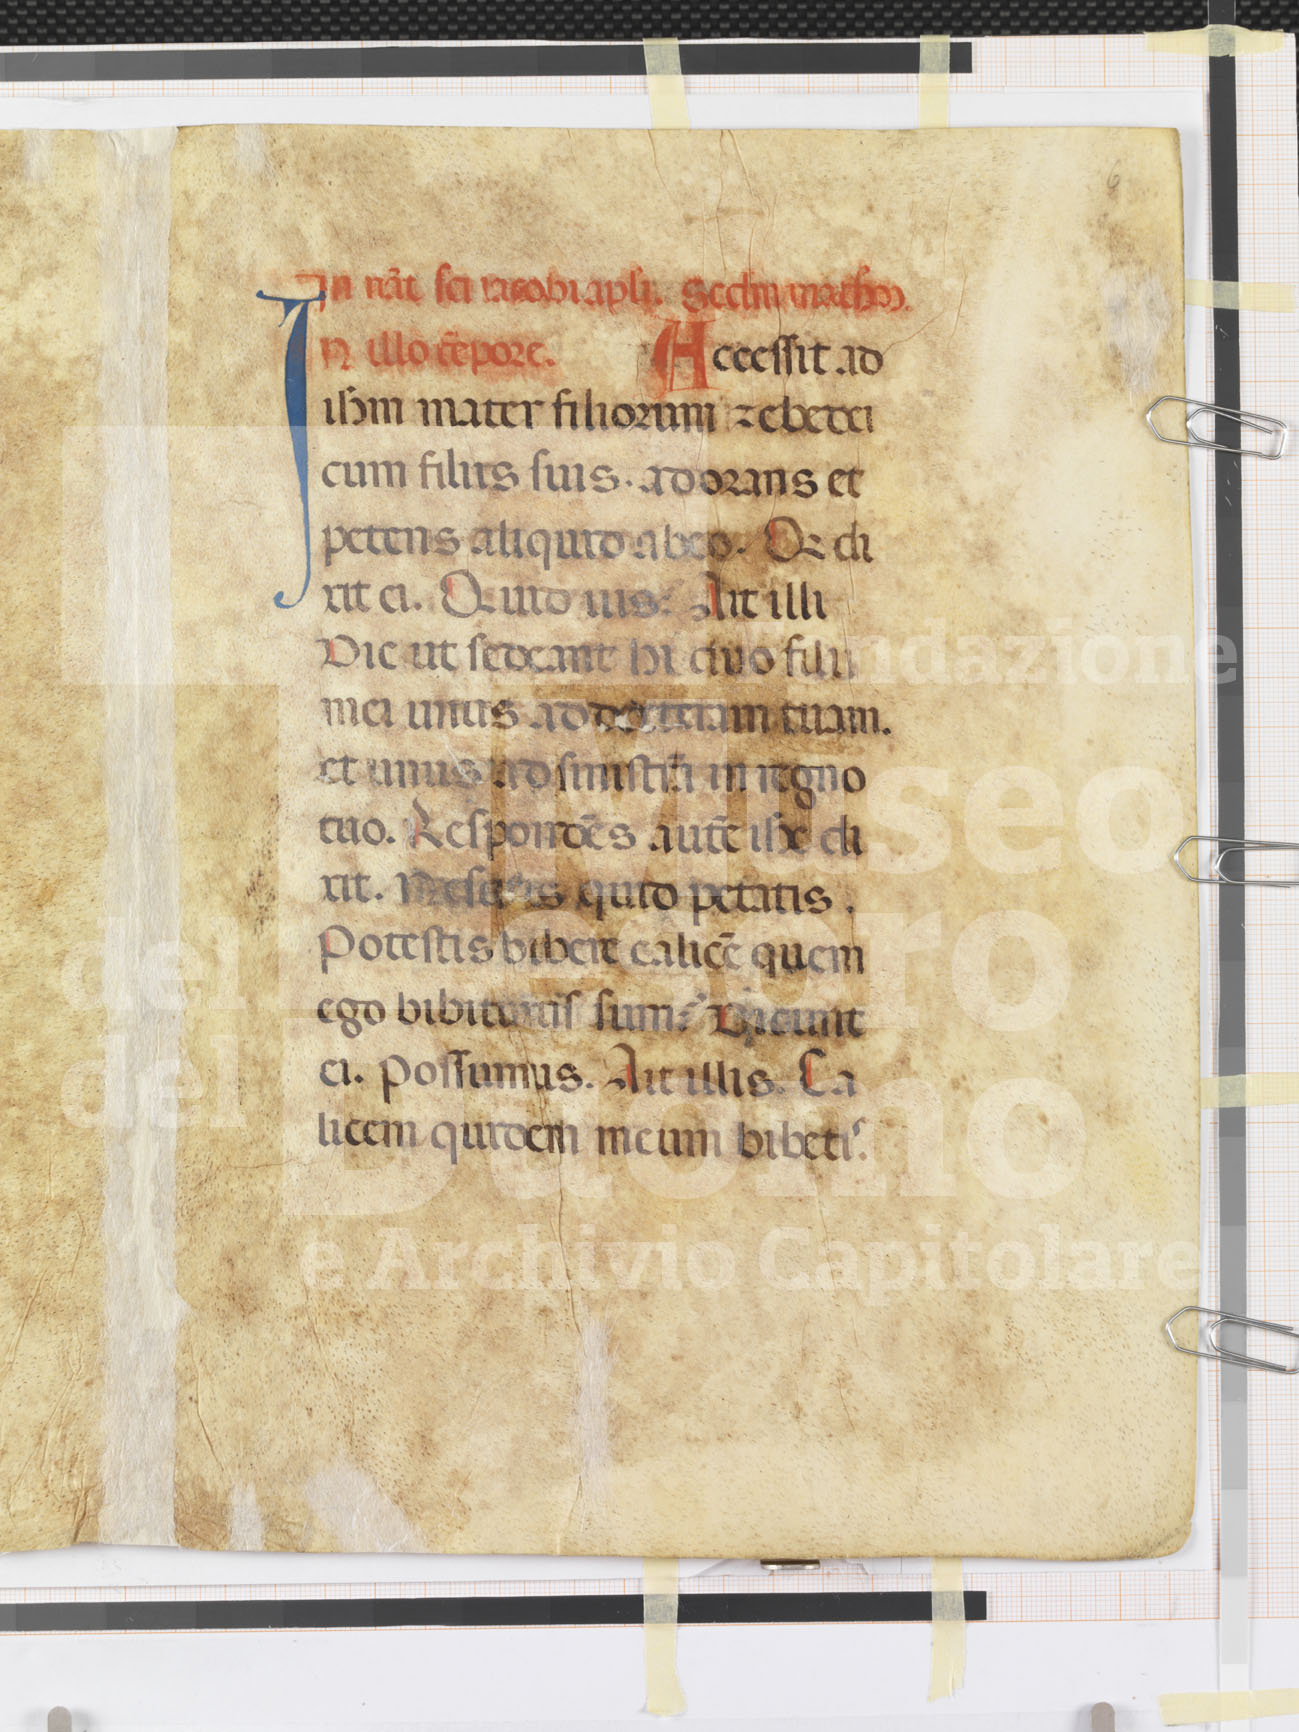 6
In nāt sci iacobi apli. Scdm matheū.
In illo tēpore. Accessit ad
ihm mater filiorum zebedei
cum filiis suis. adorans et
petens aliquid ab eo. Qui di
xit ei. Quid uis? Ait illi
Dic ut sedeant hi duo filii
mei unus ad dexteram tuam.
et unus ad sinistrā in regno
tuo. Respondēs autē ihc di
xit. Nescitis quid petatis.
Potestis bibere calicē quem
ego bibiturus sum? Dicunt
ei. Possumus. Ait illis. Ca
licem quidem meum bibetis.
Fondazione
Museo
del Tesoro
del Duomo
e Archivio Capitolare